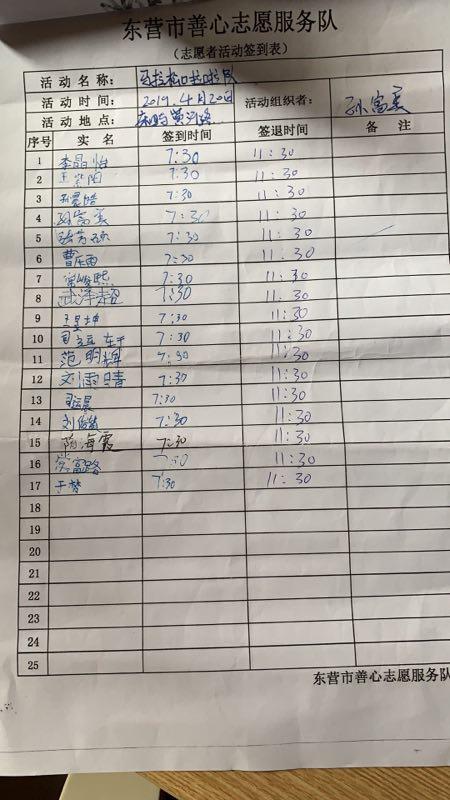 东营市善心志愿服务队
(志愿者活动签到表)
活动名称: 马拉松啦啦队
活动时间: 2019.4月20日 活动组织者: 孙富美
活动地点: 黄河路
序号 实名 签到时间 签退时间 备注
1 李晶怡 7:30 11:30
2 王紫阳 7:30 11:30
3 7:30 11:30
4 孙富美 7:30 11:30
5 7:30 11:30
6 曹雨 7:30 11:30
7 7:30 11:30
8 武泽 7:30 11:30
9 王昱坤 7:30 11:30
10 7:30 11:30
11 范明辉 7:30 11:30
12 刘雨晴 7:30 11:30
13 7:30 11:30
14 刘 7:30 11:30
15 海霞 7:30 11:30
16 富路 7:30 11:30
17 于梦 7:30 11:30
18
19
20
21
22
23
24
25
东营市善心志愿服务队